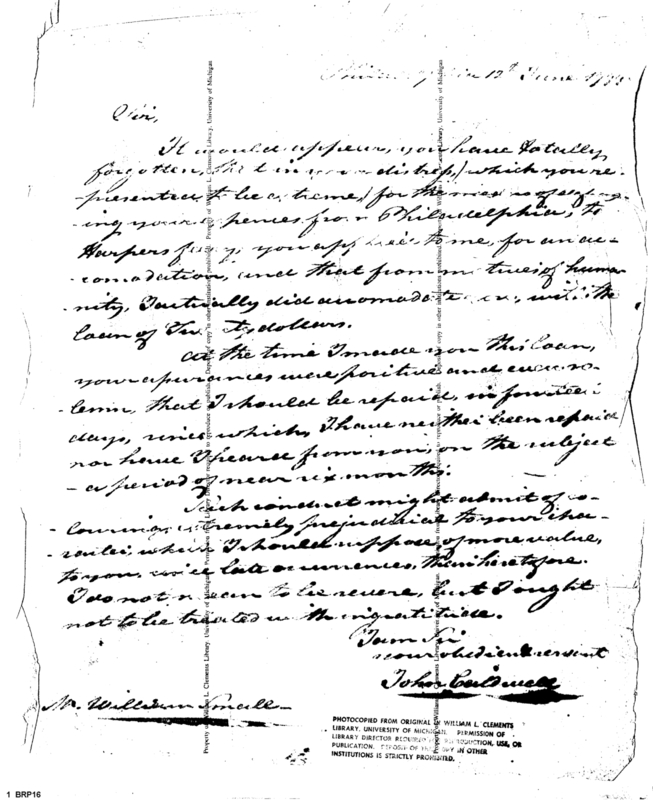 Philadelphia 12th June
Sir,
It would appear, you have totally
forgotten, that in your distress, (which you re-
-presented to be extreme,) for the means of defray-
-ing your expences from Philadelphia, to
Harpers ferry, you applied to me, for an ac-
-comodation, and that from motives of huma-
nity, I actually did accomodate you, with the
loan of Twenty dollars.
At the time I made you this loan,
your assurances were, positive and even so-
-lemn, that I should be repaid, in fourteen
days, since which, I have neither been repaid
nor have I heard from you, on the subject
- a period of near six months.
Such conduct might admit of co-
-louring extremely prejudicial to your cha-
-racter, which I should suppose of more value,
to you, since late occurrences, than heretofore.
I do not mean to be severe, but I ought
not to be treated with ingratitude.
I am Sir
your obedient servant
John Caldwell
Mr. William Small
PHOTOCOPIED FROM ORIGINAL IN WILLIAM L. CLEMENTS
LIBRARY, UNIVERSITY OF MICHIGAN. PERMISSION OF
LIBRARY DIRECTOR REQUIRED FOR REPRODUCTION, USE, OR
PUBLICATION. DEPOSIT OF THIS COPY IN OTHER
INSTITUTIONS IS STRICTLY PROHIBITED.
1 BRP16